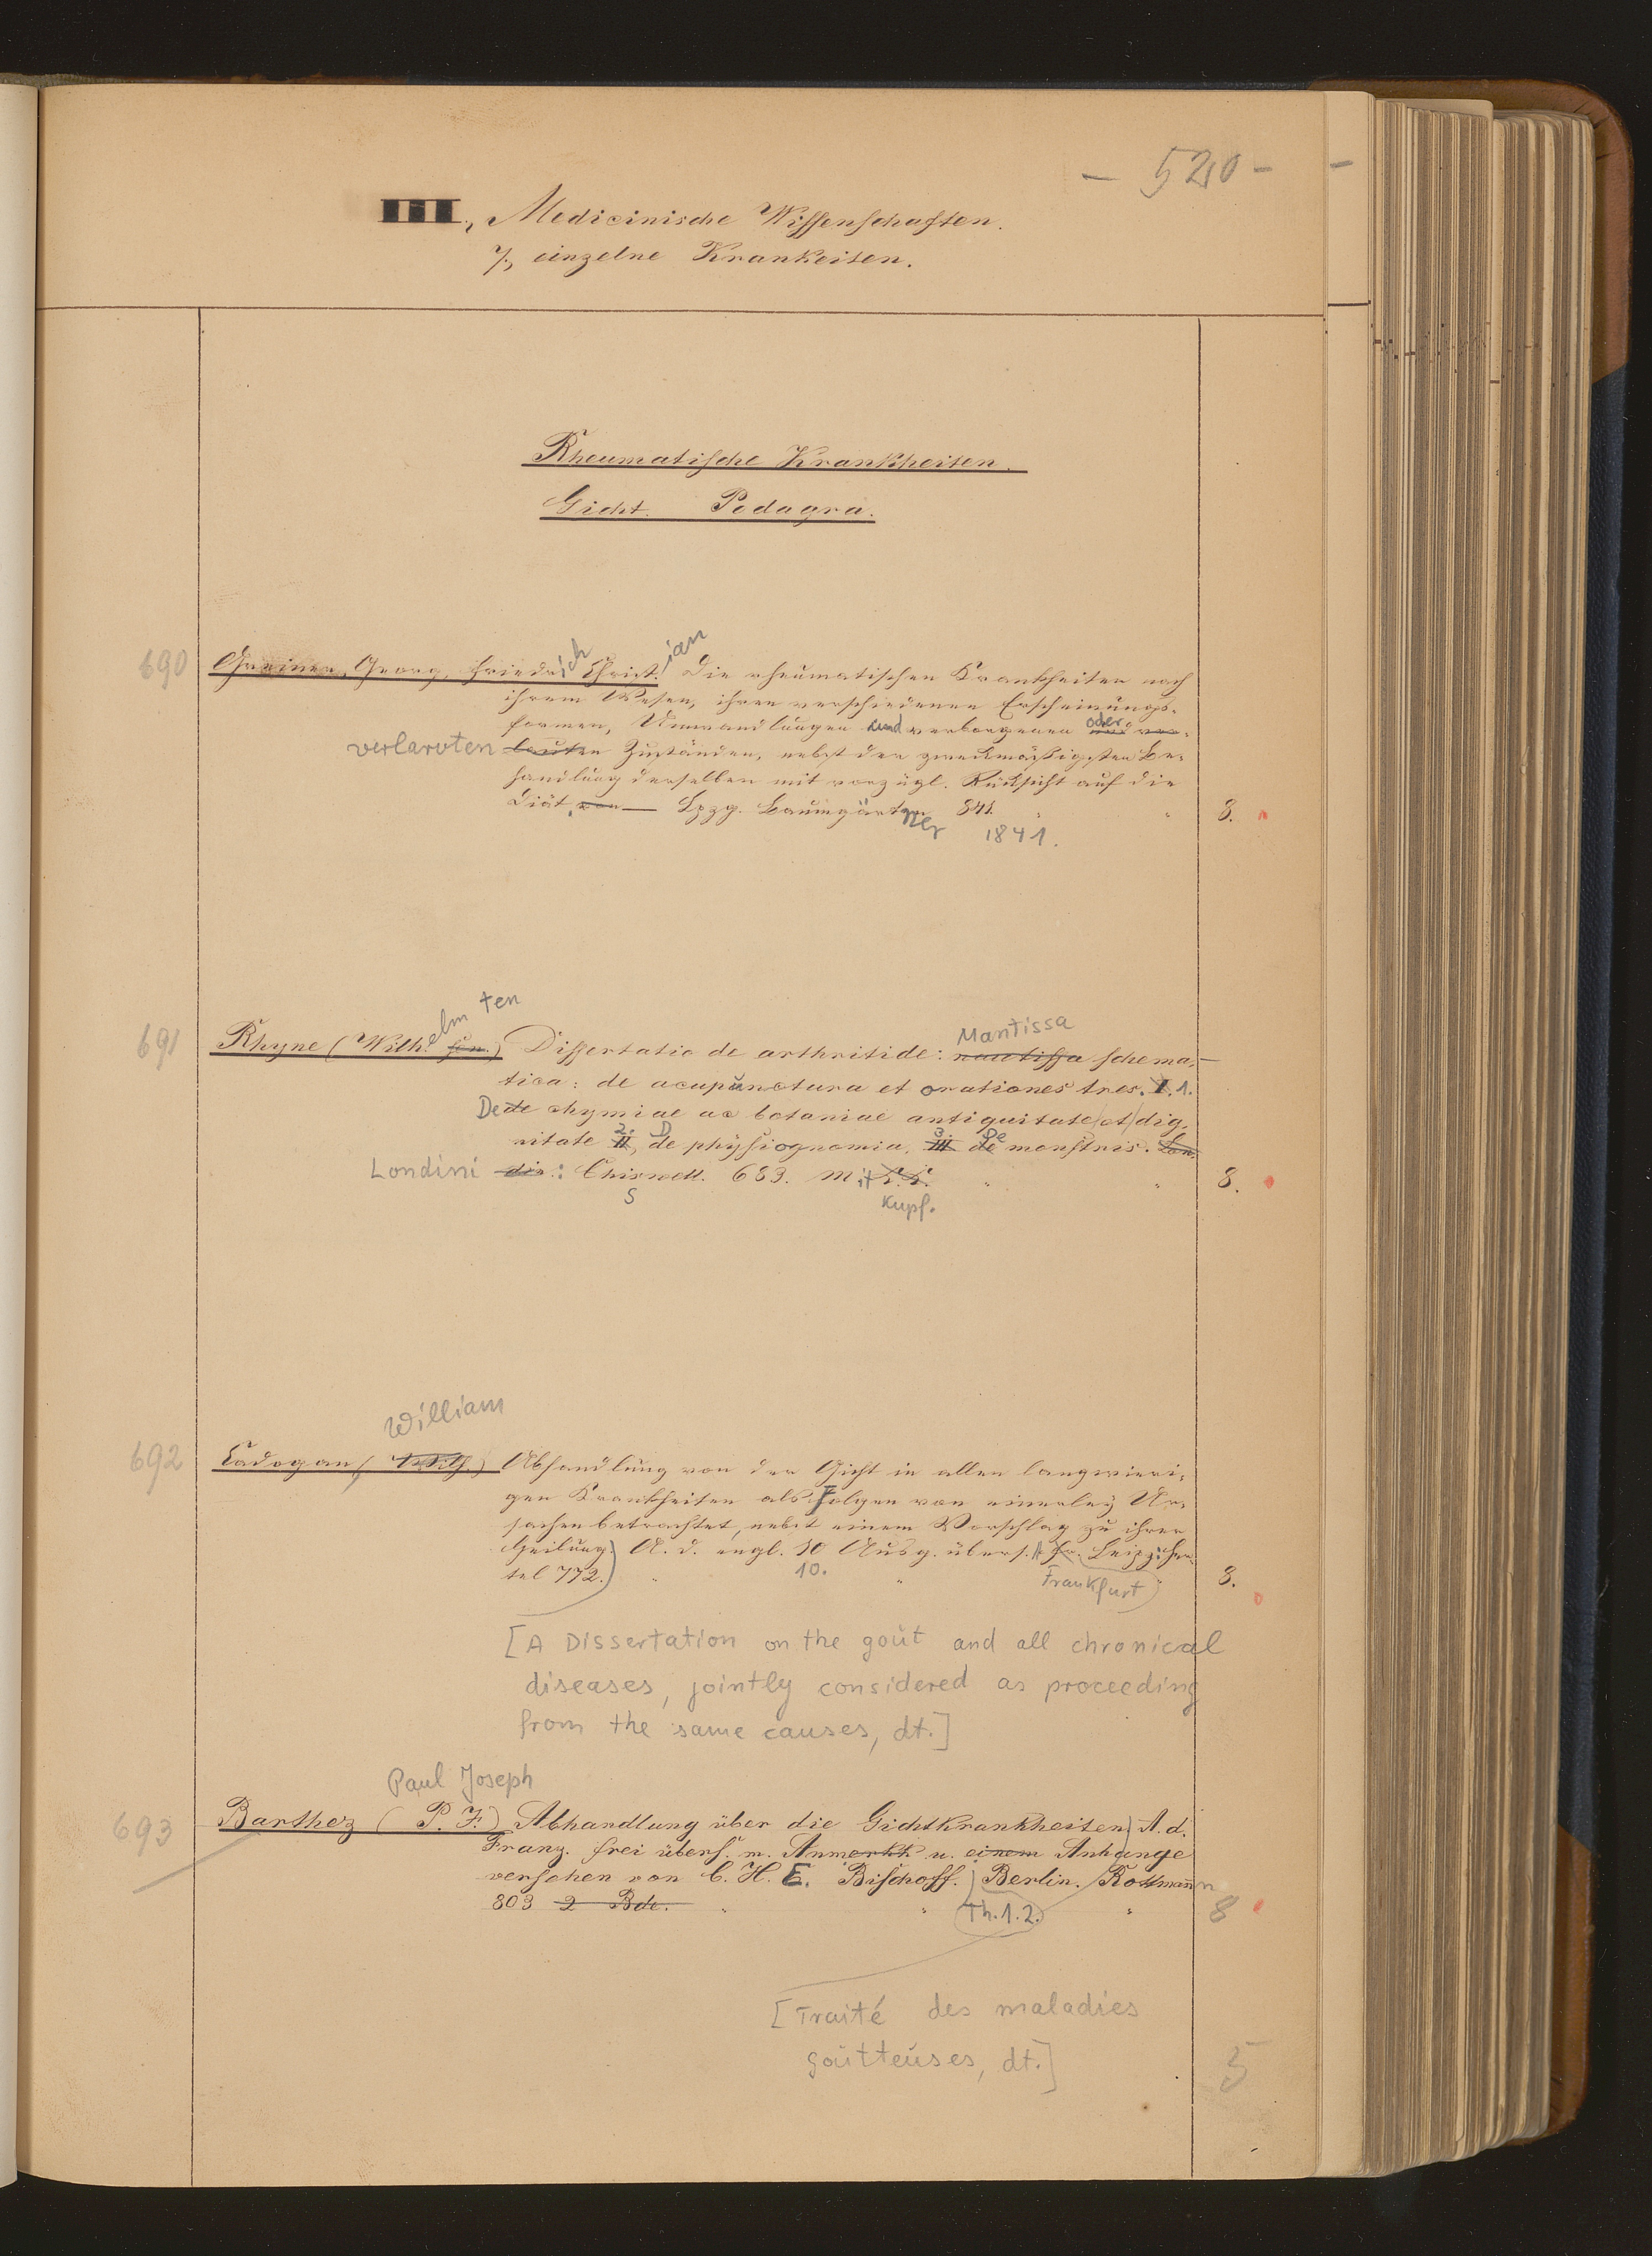 - 520 -
III, Medicinische Wissenschaften.
7, einzelne Krankeiten.
Rheumatische Krankheiten.
Gicht. Podagra.
690 Greiner, Georg, Friedrich Christian Die rheumatischen Krankheiten nach
ihrem Wesen, ihren verschiedenen Erscheinungs-
formen, Umwandlungen und verborgenen oder
verlarvten Zuständen, nebst der zweckmäßigsten Be-
handlung derselben mit vorzügl. Rücksicht auf die
Diät, von Lpzg. Baumgärtner 841. " " 8.
1841.
elm ten
Mantissa
691 Rhyne (Wilh. fen.) Dissertatio de arthritide: mantissa schema-
tica: de acupunctura et orationes tres. I. 1.
De de chymiae ac botaniae antiquitate et dig-
nitate II 2. De physiognomia, III 3. De monstris. Lon
Londini din: Chiswell. 683. mit " " 8.
s Kupf.
William
692 Cadogan, (Wilh.) Abhandlung von der Gicht in allen langwieri-
gen Krankheiten als Folgen von einerley Ur-
sachen betrachtet, nebst einem Vorschlag zu ihrer
Heilung. A. d. engl. 10 Ausg. übers. Fr. Leipz: Her-
tel 772. " 10. " Frankfurt " 8.
[A Dissertation on the gout and all chronical
diseases, jointly considered as proceeding
from the same causes, dt.]
Paul Joseph
693 Barthez (P. J.) Abhandlung über die Gichtkrankheiten A. d.
Franz. frei übers. m. Anmerkk u. einem Anhange
versehen von C. H. E. Bischoff. Berlin. Rottmann
803 2 Bde. " " Th. 1. 2. " 8
[Traité des maladies
goutteuses, dt.]
5